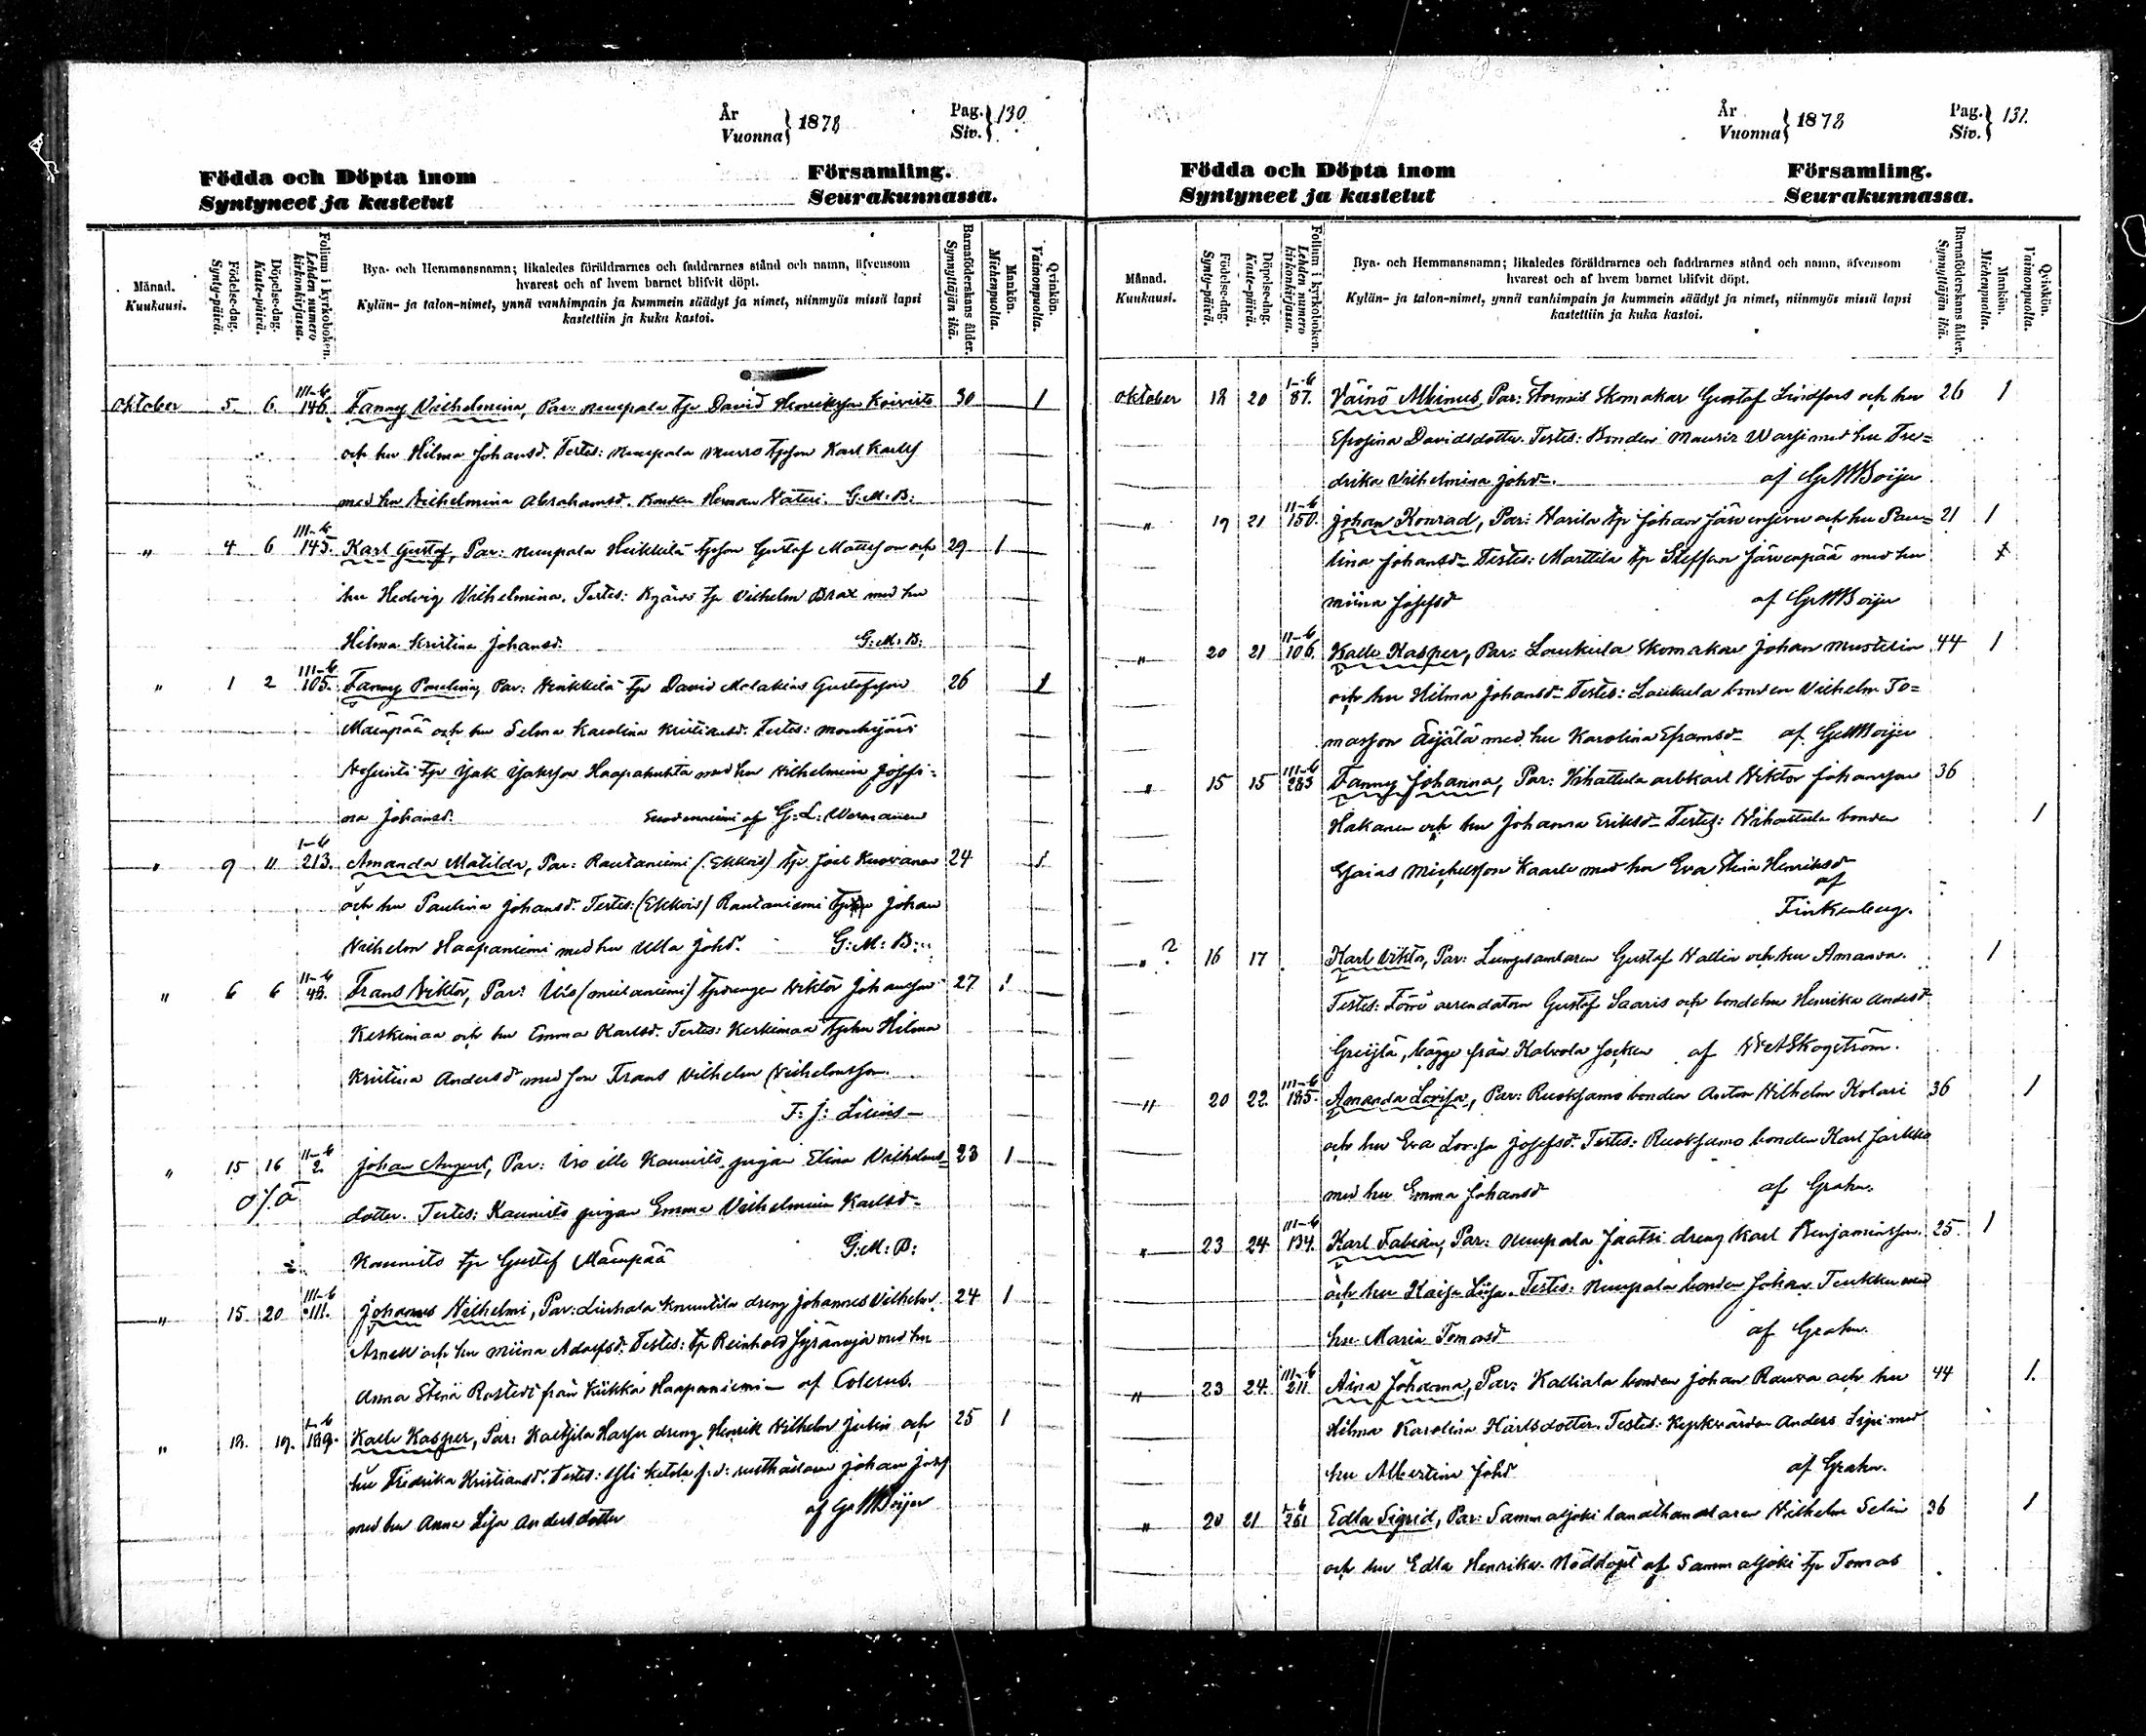 År
Vuonna } 1878
Pag.
Siv. } 130.
Födda och Döpta inom Församling.
Syntyneet ja kastetut Seurakunnassa.
Månad.
Kuukausi.
Födelse-dag.
Synty-päivä.
Döpelse-dag.
Kaste-päivä.
Folium i kyrkoboken.
Lehden numero kirkonkirjassa.
Bya- och Hemmansnamn; likaledes föräldrarnes och faddrarnes stånd och namn, äfvensom
hvarest och af hvem barnet blifvit döpt.
Kylän- ja talon-nimet, ynnä vanhimpain ja kummein säädyt ja nimet, niinmyös missä lapsi
kastettiin ja kuka kastoi.
Barnaföderskans ålder.
Synnyttäjän ikä.
Mankön.
Miehenpuolta.
Qvinkön.
Vaimonpuolta.
Oktober 5. 6. III-b 146. Fanny Vilhelmina, Par: Nuupala tp David Henriksson Koivisto 30 1
och hu Hilma Johansd. Testes: Nuupala Murro tpson Karl Karlss
med hu Vilhelmina Abrahamsd. G: M: B:
" 4 6 III-b 145. Karl Gustaf, Par: Nuupala Heikkilä tpson Gustaf Mattsson och 29 1
hu Hedvig Vilhelmina. Testes: tp Vilhelm Brax med hu
Hilma Kristina Johansd. G: M: B:
" 1 2 III-b 105. Fanny Paulina, Par: Heikkilä tp David Malakias Gustafsson 26 1
Mäenpää och hu Selma Karolina Kristiansd. Testes: Mouhijärvi
tp Isak Isaksson Haapahuhta med hu Vilhelmina Josefi-
na Johansd. af G: L: Wermanen
" 9 11 I-b 213. Amanda Matilda, Par: Rautaniemi (Ekkois) tp Joel Kuovanen 24 1
och hu Paulina Johansd. Testes: (Ekkois) Rautaniemi Johan
Vilhelm Haapaniemi med hu Ulla Johd. G: M: B:
" 6 6 II-b 48. Frans Viktor, Par: Uis (mielaniemi) Viktor Johansson 27 1
Keskimaa och hu Emma Karlsd. Testes: Keskimaa tphu Hilma
Kristina Andersd med son Frans Vilhelm Vilhelmsson.
F: J: Lilius
" 15 16 II-b 2. Johan August, Par: Kaunisto pigan Elina Vilhelms- 23 1
o/ä
dotter. Testes: Kaunisto pigan Emma Vilhelmina Karlsd
Kaunisto tp Gustaf Mäenpää G: M: B:
" 15 20 III-b 111. Johannes Vilhelmi, Par: Liuhala Knuutila dreng Johannes Vilhelm 24 1
Arnell och hu Miina Adolfsd. Testes: tp Reinhold med hu
Anna Stina från Kiikka Haapaniemi af Colerus.
" 18. 19. I-b 189. Kalle Kasper, Par: Kaltsila Harju dreng Henrik Vilhelm Julin och 25 1
hu Fredrika Kristiansd. Testes: Ketola f.d. rusthållare Johan Josef
med hu Anna Lisa Andersdotter af G MBoijer
År
Vuonna } 1878
Pag.
Siv. } 131.
Födda och Döpta inom Församling.
Syntyneet ja kastetut Seurakunnassa.
Månad.
Kuukausi.
Födelse-dag.
Synty-päivä.
Döpelse-dag.
Kaste-päivä.
Folium i kyrkoboken.
Lehden numero kirkonkirjassa.
Bya- och Hemmansnamn; likaledes föräldrarnes och faddrarnes stånd och namn, äfvensom
hvarest och af hvem barnet blifvit döpt.
Kylän- ja talon-nimet, ynnä vanhimpain ja kummein säädyt ja nimet, niinmyös missä lapsi
kastettiin ja kuka kastoi.
Barnaföderskans ålder.
Synnyttäjän ikä.
Mankön.
Miehenpuolta.
Qvinkön.
Vaimonpuolta.
Oktober 18 20 I-b 87. Väinö Albinus, Par: Stormis Skomakar Gustaf Lindfors och hu 26 1
Efrosina Davidsdotter. Testes: Bonden Mauriz Warsi med hu Fre-
drika Vilhelmina Johd. af G MBoijer
" 19 21 II-b 150. Johan Konrad, Par: Warila tp Johan och hu Pau- 21 1
lina Johansd. Testes: Marttila tp Steffan Järvenpää med hu
Miina Josefsd af G MBoijer
" 20 21 II-b 106. Kalle Kasper, Par: Laukula Skomakar Johan Mustelin 44 1
och hu Hilma Johansd. Testes: Laukula bonden Vilhelm To-
masson Äijälä med hu Karolina Eframsd af G MBoijer
" 15 15 III-b 283 Fanny Johanna, Par: Vihattula arbkarl Viktor Johansson 36
Hakanen och hu Johanna Eriksd. Testes: Vihattula bonden 1
Esaias Michelsson Kaarle med hu Eva Stina Henriksd
af
Finkenberg.
" ? 16 17 Karl Viktor, Par: Lumpsamlaren Gustaf Wallin och hu Amanda. 1
Testes: arrendatorn Gustaf Saaris och bondehu Henrika Andersd
bägge från Kalvola Socken af Skogström.
" 20 22 III-b 185. Amanda Lovisa, Par: Ruoksamo bonden Anton Vilhelm Kolari 36 1
och hu Eva Lovisa Josefsd. Testes: Ruoksamo bonden Karl Jarkko
med hu Emma Johansd af Grahn.
" 23 24 III-b 134. Karl Fabian, Par: Nuupala Jaatsi dreng Karl Benjaminsson 25. 1
och hu Kaisa Liisa. Testes: Nuupala bonden Johan med
hu Maria Tomasd af Grahn.
" 23 24. III-b 211 Aina Johanna, Par: Kalliala bonden Johan Rauva och hu 44 1.
Hilma Karolina Karlsdotter. Testes: Kyrkvärden Anders med
hu Albertina Johd af Grahn.
" 20 21 I-b 261 Edla Sigrid, Par: Sammaljoki landthandlaren Vilhelm Selin 36 1
och hu Edla Henrika. Nöddöpt af Sammaljoki tp Tomas